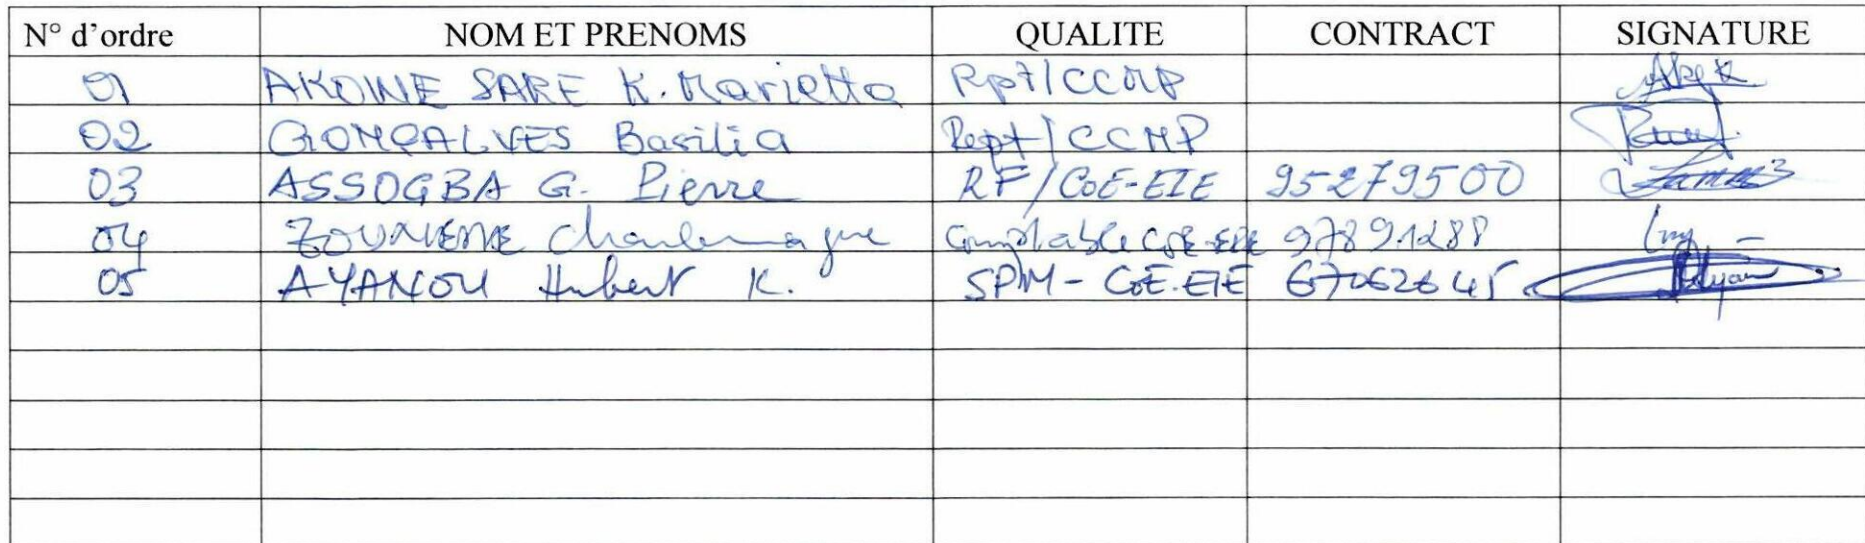 N° d'ordre NOM ET PRENOMS QUALITE CONTRACT SIGNATURE
01 AKOINE SARE K. Marietta Rpt/CCMP
02 GONÇALVES Basilia Rept/CCMP
03 ASSOGBA G. Pierre RF/CoE-EIE 95279500
04 Charlemagne Comptable CoE-EIE 97891288
05 AYANOU Hubert K. SPM-CoE.EIE 67062645